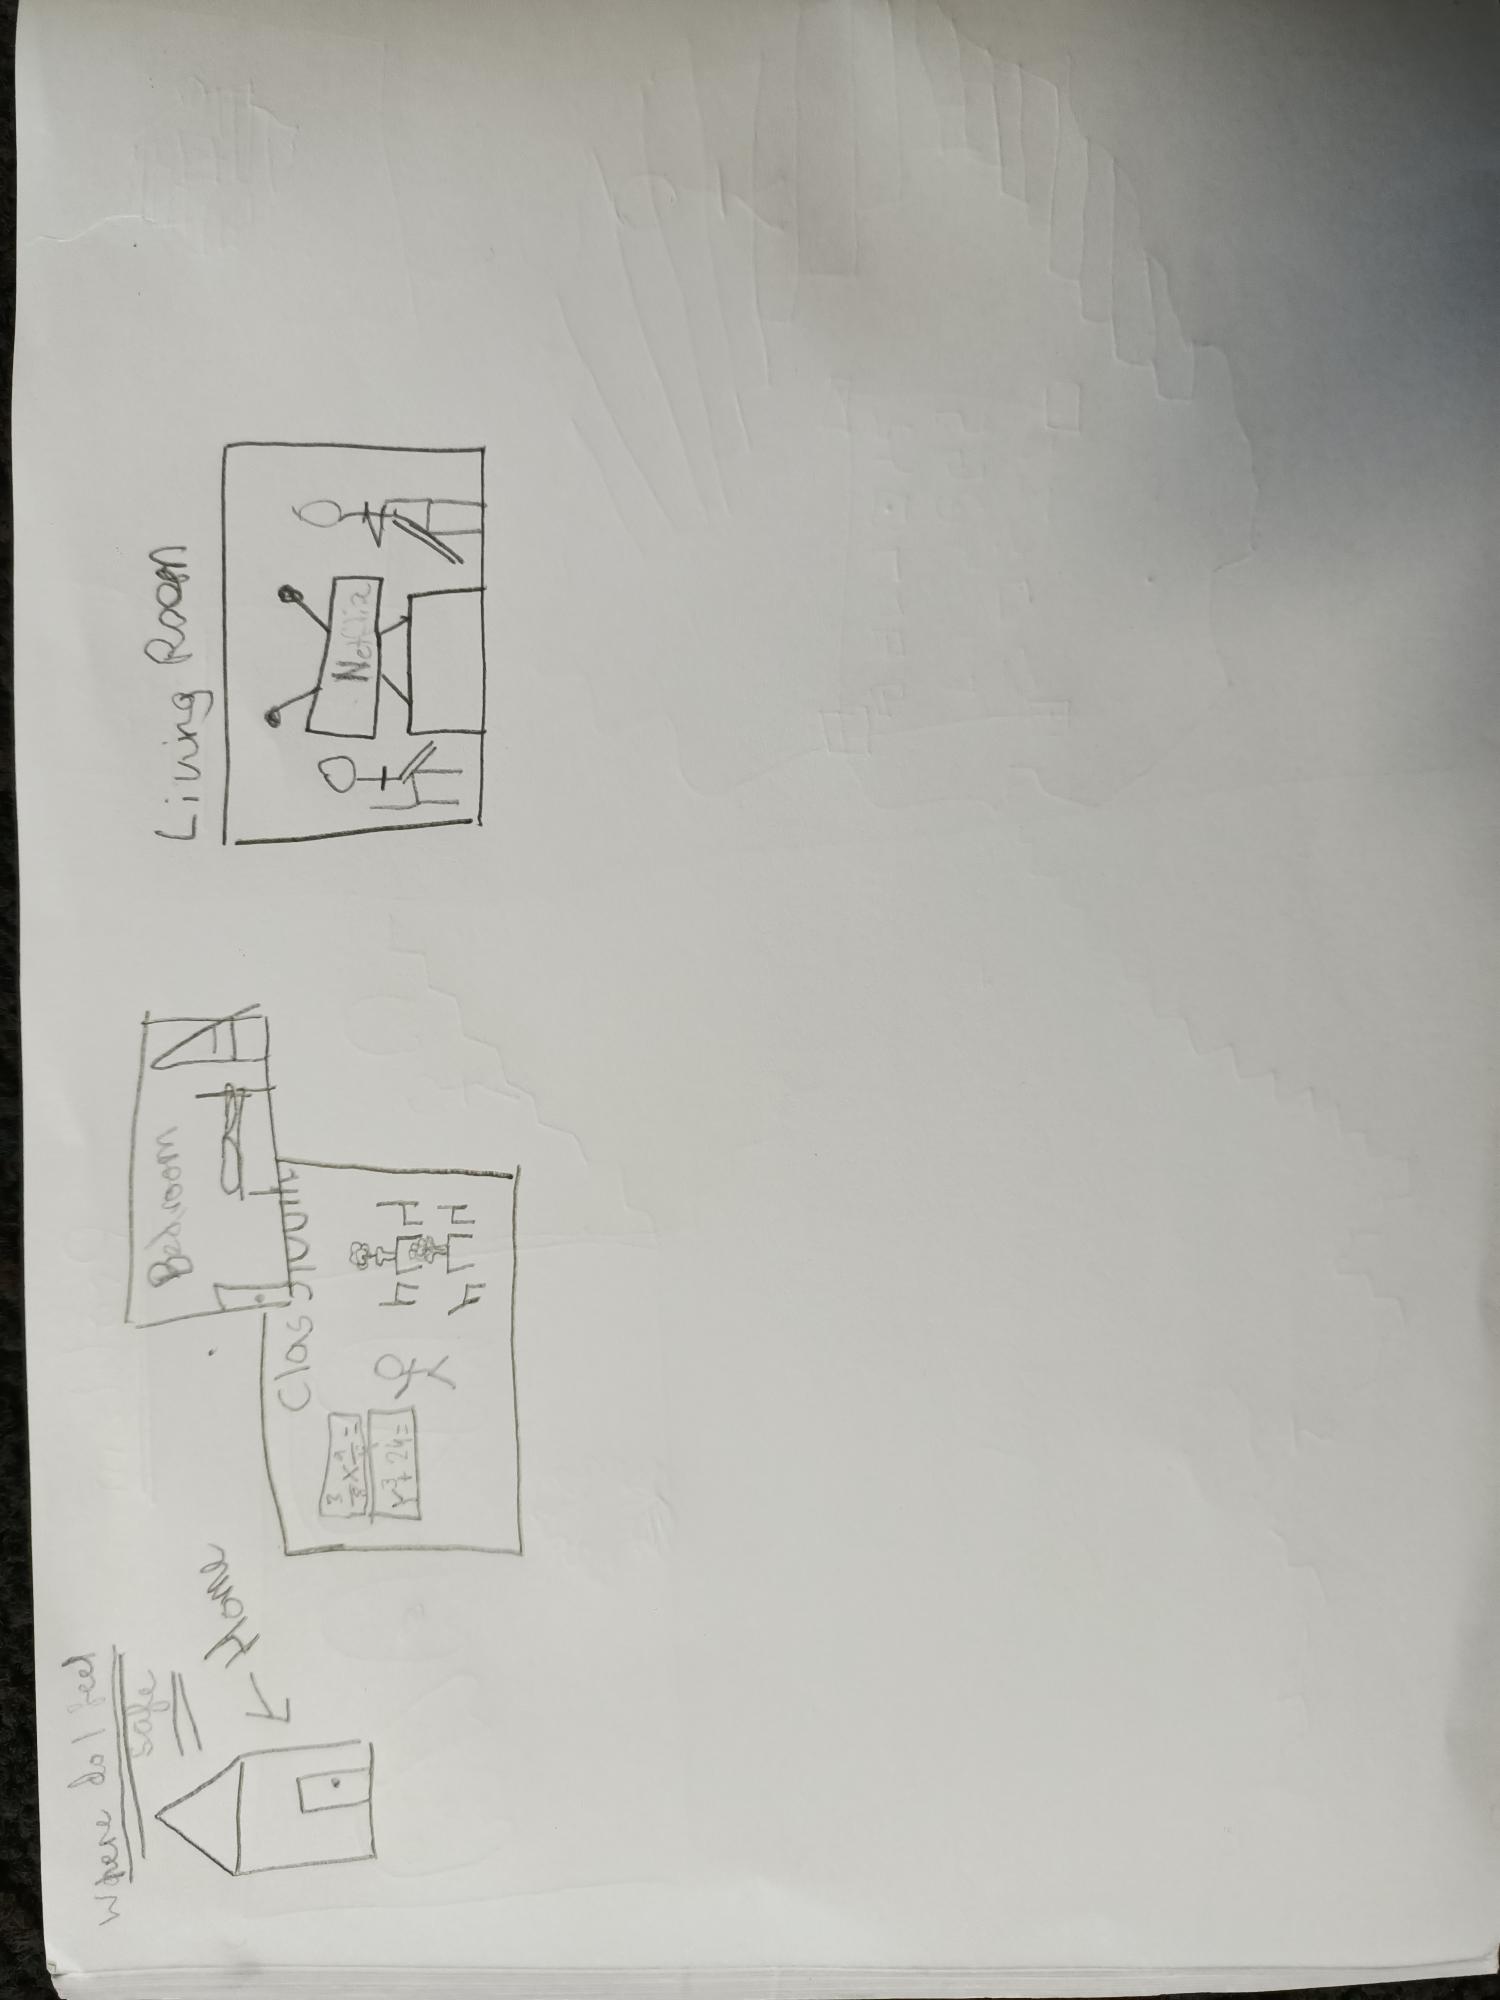 Where do I feel
safe
Home
Bedroom
Classroom
3/5 x 9/ =
Y³ + 24 =
Living Room
Netflix